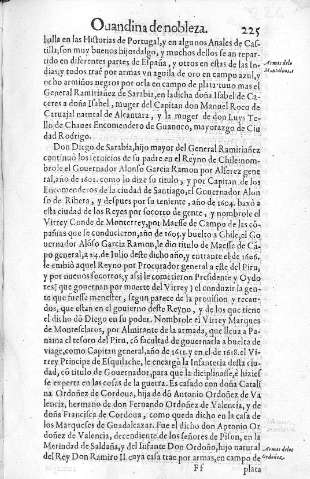 Ouandina de nobleza. 225
halla en las Historias de Portugal, y en algunos Anales de Cas-
tilla, son muy buenos hijosdalgo, y muchos dellos se an repar-
tido en diferentes partes de España, y otros en estas de las In-
dias, y todos traé por armas vn aguila de oro en campo azul, y
ocho armiños negros por orla en campo de plata: tuuo mas el
General Ramirianez de Sarabia, en la dicha doña Isabel de Ca-
ceres a doña Isabel, muger del Capitan don Manuel Roco de
Caruajal natural de Alcantara, y la muger de don Luys Te-
llo de Chaues Encomendero de Guanoco, mayorazgo de Ciu
dad Rodrigo.
Don Diego de Sarabia, hijo mayor del General Ramirianez
continuò los seruicios de su padre en el Reyno de Chile: nom-
brole el Gouernador Alonso Garcia Ramon por Alferez gene
ral, año de 1601. como lo dize su titulo, y por Capitan de los
Encomenderos de la ciudad de Santiago, el Gouernador Alon
so de Ribera, y despues por su teniente, año de 1604. baxò a
esta ciudad de los Reyes por socorro de gente, y nombrole el
Virrey Conde de Monterrey, por Maesse de Campo de las có-
pañias que se conduxeron, año de 1605. y buelto a Chile, el Go
uernador Alóso Garcia Ramon, le dio titulo de Maesse de Cá-
po general, a 24. de Iulio deste dicho año, y entrante el de 1606.
le embiò aquel Reyno por Procurador general a este del Piru,
y por nueuos socorros, y assi le cometieron Presidente y Oydo-
res (que gouernan por muerte del Virrey) el conduzir la gen-
te que fuesse menester, segun parece de la prouision, y recau-
dos, que estan en el gouierno deste Reyno, y de los que tiene
el dicho don Diego en su poder. Nombrole el Virrey Marques
de Montesclaros, por Almirante de la armada, que lleua a Pa-
nama el tesoro del Piru, có facultad de gouernarla a buelta de
viage, como Capitan general, año de 1615. y en el de 1618. el Vi
rrey Principe de Esquilache, le encargò la Infanteria desta ciu-
dad, có titulo de Gouernador, para que la diciplinasse, è hiziesse
experta en las cosas de la guerra. Es casado con doña Catali
na Ordoñez de Cordoua, hija de dó Antonio Ordoñez de Va
lencia, hermano de don Fernando Ordoñez de Valencia, y de
doña Francisca de Cordoua, como queda dicho en la casa de
los Marqueses de Guadalcazar. Fue el dicho don Antonio Or
doñez de Valencia, decendiente de los señores de Pison, en la
Merindad de Saldaña, y del Infante Don Ordoño, hijo natural
del Rey Don Ramiro II. cuya casa trae por armas, en campo de
Ff plata
Armas de los
Armas de los
Ordoñez.